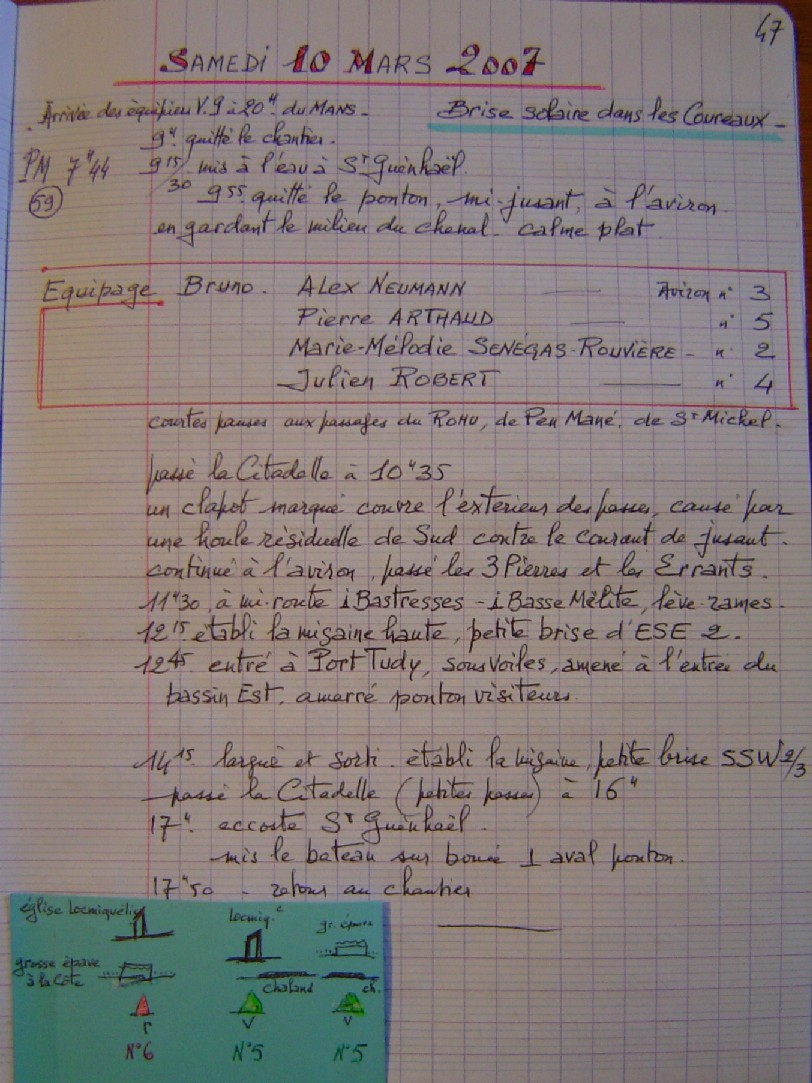 47
SAMEDI 10 MARS 2007
. Arrivée des équipiers V. 9 à 20H du MANS -
Brise solaire dans les Coureaux -
9H quitté le chantier.
PM 7H44
9 15/30 mis à l'eau à St Guénhaël
59
9 55 quitté le ponton, mi-jusant, à l'aviron
en gardant le milieu du chenal. calme plat
Equipage Bruno. ALEX NEUMANN — Aviron n° 3
Pierre ARTHAUD — n° 5
Marie-Mélodie SENÉGAS-ROUVIÈRE - n° 2
Julien ROBERT — n° 4
courtes pauses aux passages du ROHU, de Pen Mané, de St Michel.
passé la Citadelle à 10H35
un clapot marqué couvre l'extérieur des passes, causé par
une houle résiduelle de Sud contre le courant de jusant.
continué à l'aviron, passé les 3 Pierres et les Errants.
11H30, à mi-route i Bastresses - i Basse Mélite, lève-rames.
12 15 établi la misaine haute, petite brise d'ESE 2.
12 45 entré à Port Tudy, sous voiles, amené à l'entrée du
bassin Est. amarré ponton visiteurs
14 15 largué et sorti. établi la misaine, petite brise SSW 2/3
passé la Citadelle (petites passes) à 16H
17H. accosté St Guénhaël.
mis le bateau sur bouée 1 aval ponton.
17H50 - retour au chantier
église Locmiquélic
Locmiq.c
gr. épave
grosse épave
à la Côte
chaland
ch.
r
V
V
N°6
N°5
N°5